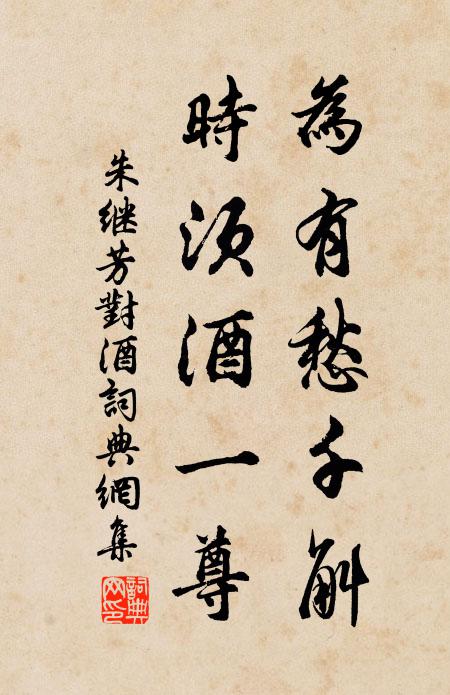 為有愁千斛
時須酒一尊
朱继芳對酒詞典網集
詞典網印